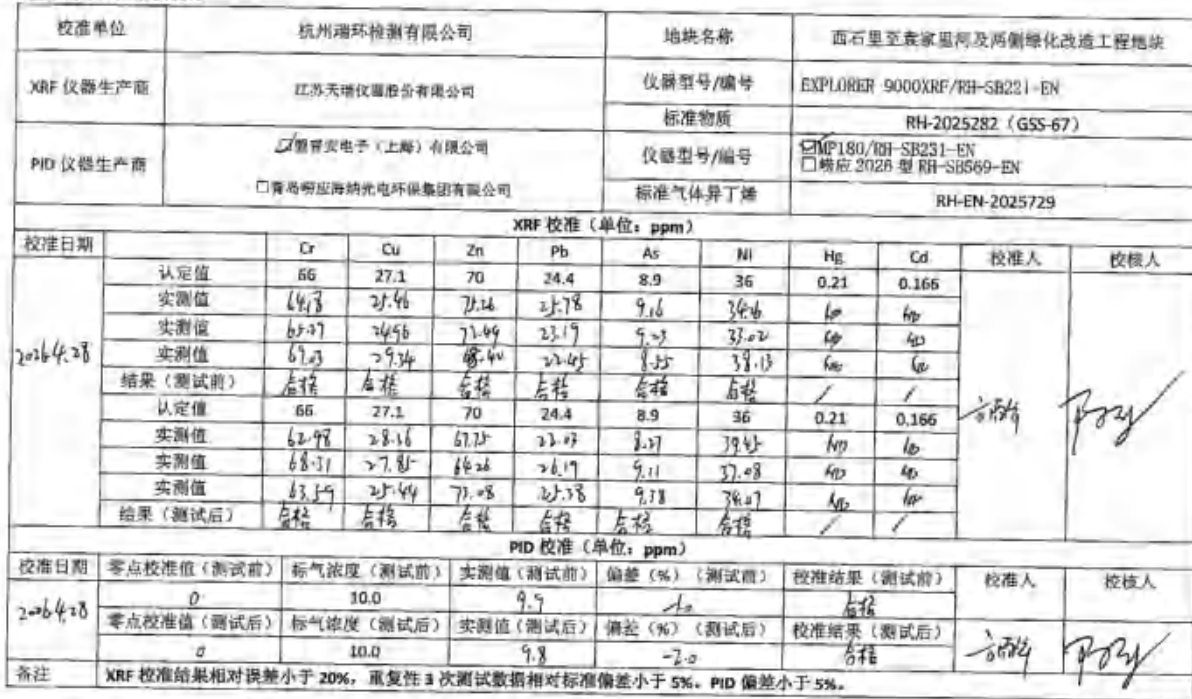 校准单位 杭州瑞环检测有限公司 地块名称 西石里至袁家里河及两侧绿化改造工程地块
XRF 仪器生产商 江苏天瑞仪器股份有限公司 仪器型号/编号 EXPLORER 9000XRF/RH-SB221-EN
标准物质 RH-2025282（GSS-67）
PID 仪器生产商 ☑盟普安电子（上海）有限公司 仪器型号/编号 ☑MP180/RH-SB231-EN
□青岛崂应海纳光电环保集团有限公司 □崂应 2026 型 RH-SB569-EN
标准气体异丁烯 RH-EN-2025729
XRF 校准（单位：ppm）
校准日期 Cr Cu Zn Pb As Ni Hg Cd 校准人 校核人
认定值 66 27.1 70 24.4 8.9 36 0.21 0.166
实测值 64.18 25.46 75.26 25.78 9.16 34.26
实测值 65.27 24.96 72.49 23.19 9.23 33.02
2026.4.28 实测值 67.03 29.34 68.40 22.45 8.55 38.13
结果（测试前） 合格 合格 合格 合格 合格 合格 / /
认定值 66 27.1 70 24.4 8.9 36 0.21 0.166
实测值 62.98 28.16 67.75 22.03 8.27 39.45
实测值 68.31 27.85 64.26 26.19 9.11 37.08
实测值 63.59 25.44 73.08 25.38 9.38 34.07
结果（测试后） 合格 合格 合格 合格 合格 合格 / /
PID 校准（单位：ppm）
校准日期 零点校准值（测试前） 标气浓度（测试前） 实测值（测试前） 偏差（%）（测试前） 校准结果（测试前） 校准人 校核人
2026.4.28 0 10.0 9.9 -1.0 合格
零点校准值（测试后） 标气浓度（测试后） 实测值（测试后） 偏差（%）（测试后） 校准结果（测试后）
0 10.0 9.8 -2.0 合格
备注 XRF 校准结果相对误差小于 20%，重复性 3 次测试数据相对标准偏差小于 5%。PID 偏差小于 5%。